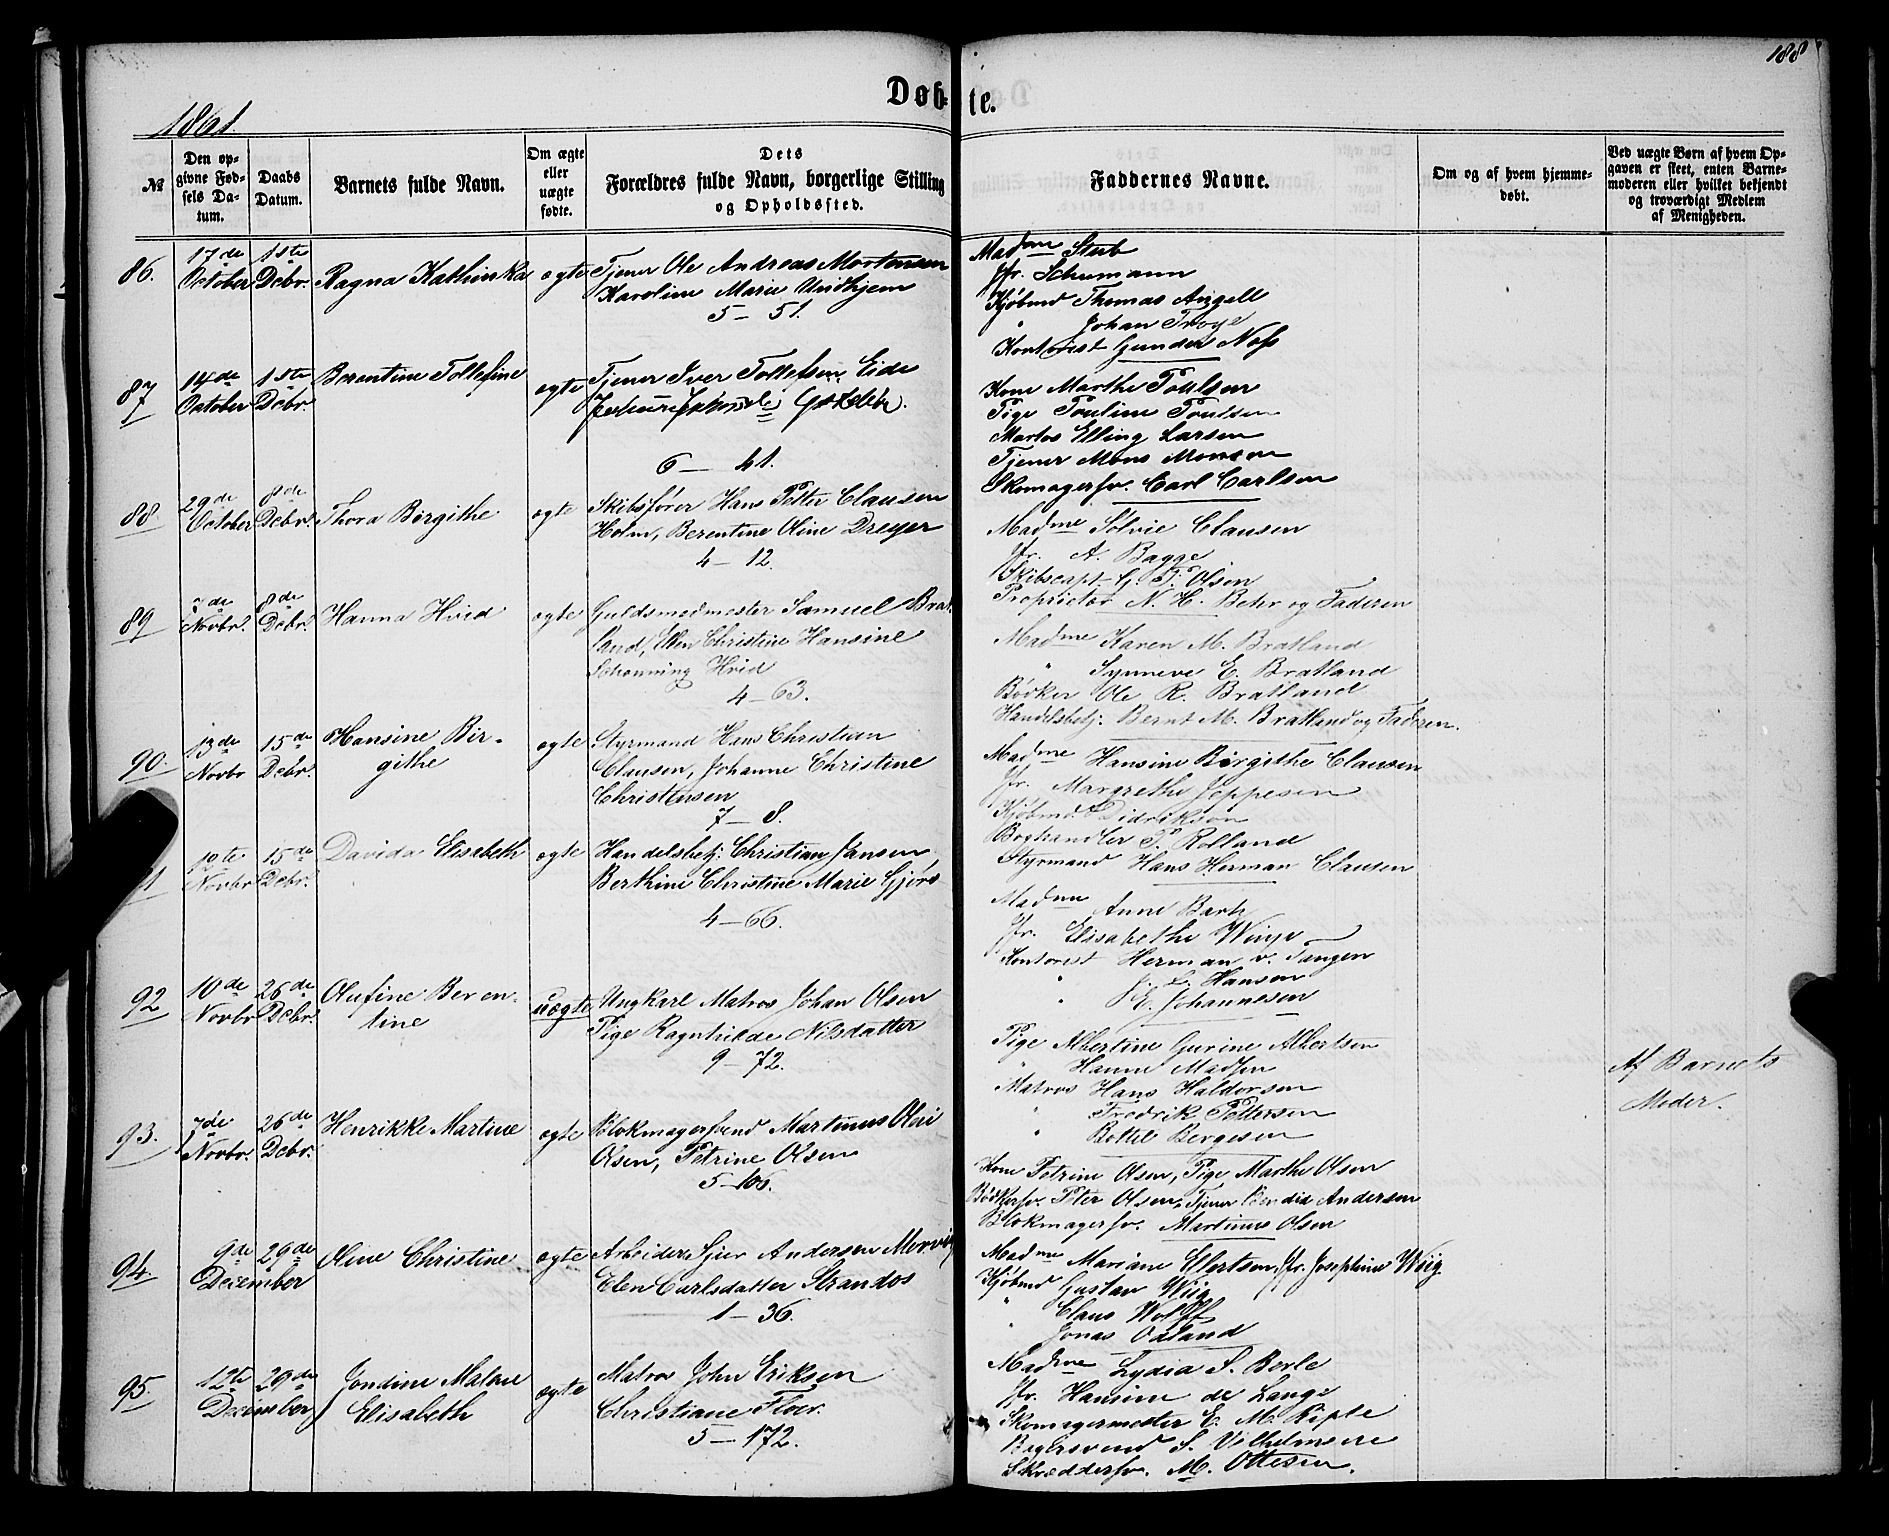 188
Døbte.
1861.
№
Den opgivne Fødsels Datum.
Daabs Datum.
Barnets fulde Navn.
Om ægte eller uægte fødte.
Dets Forældres fulde Navn, borgerlige Stilling og Opholdssted.
Faddernes Navne.
Om og af hvem hjemmedøbt.
Ved uægte Børn af hvem Opgaven er skeet, enten Barnemoderen eller hvilket bekjendt og troværdigt Medlem af Menigheden.
86.
17de October
1ste Debr.
Ragna Kathinka
ægte
Tjener Ole Andreas Mortensen
Karoline Marie Undhjem
5 – 51.
Madme Stub
Jfr. Schumann
Kjøbmd Thomas Angell
" Johan Troye
Kontorist Gunder Næss
87
14de October
1ste Debr.
Berentine Tollefine
ægte
Tjener Iver Tollefsen Eide
6 – 41.
Kone Marthe Poulsen
Pige Pouline Poulsen
Matros Elling Larsen
Tjener Mons Monsen
Skomagersv. Carl Carlsen
88
29de October
8de Debr.
Thora Birgithe
ægte
Skibsfører Hans Petter Clausen
Holm, Berentine Oline Dreyer
4 – 12.
Madme Sølvie Clausen
Jfr. A. Bagge
Skibscapt. G. T. Olsen
Proprietær N. H. Behr og Faderen
89
7de Novbr.
8de Debr.
Hanna Hvid
ægte
Guldsmedmester Samuel Brat-
land, Ellen Christine Hansine
Schønning Hvid
4 – 63.
Madme Karen M. Bratland
" Synneve E. Bratland
Bødker Ole R. Bratland
Handelsbetj. Bernt M. Bratland og Faderen.
90.
13de Novbr
15de Debr.
Hansine Bir-
githe
ægte
Styrmand Hans Christian
Clausen, Johanne Christine
Christensen
7 – 8.
Madme Hansine Birgithe Clausen
Jfr. Margrethe Joppesen
Kjøbmd. Didrikson
Boghandler P. Rolland
Styrmand Hans Herman Clausen
91
18te Novbr
15de Debr.
Davida Elisabeth
ægte
Handelsbetj. Christian Jansen,
Berthine Christine Marie Gjørs
4 – 66.
Madme Anne Barth
Jfr. Elisabethe Wiige
Kontorist Herman v. Tangen
" Hansen
" E. Johannesen
92
10de Novbr
26de Debr.
Olufine Beren-
tine
uægte
Ungkarl Matros Johan Olsen
Pige Ragnhilde Nilsdatter
9 – 72.
Pige Albertine Gurine Albertsen
" Hanne Madsen
Matros Hans Haldorsen
" Fredrik Pettersen
" Bottel Bergesen
Af Barnets
Moder.
93.
7de Novbr.
26de Debr.
Henrikke Martine
ægte
Blokmagersvend Martinus Olai
Olsen, Petrine Olsen
5 – 100.
Kone Petrine Olsen, Pige Marthe Olsen
Bødkersv. Peter Olsen, Tjener Bendix Andersen
Blokmagersv. Martinus Olsen
94.
9de December
29de
Oline Christine
ægte
Arbeider Sjur Andersen Mervig
Elen Carlsdatter Strandos
1 – 36.
Madme Mariane Ellertsen, Jfr. Josephine Wiig
Kjøbmd Gustav Wiig
" Claus Wolff
" Jonas Odland
95.
12te December
29de
Jondine Malene
Elisabeth
ægte
Matros John Eriksen
Christiane Floer.
5 – 172.
Madme Lydia S. Berle
Jfr. Hansine de Lange
Skomagermester E. M. Riple
Bagersvend S. Vilhelmsen
Skræddersv. M. Ottesen.